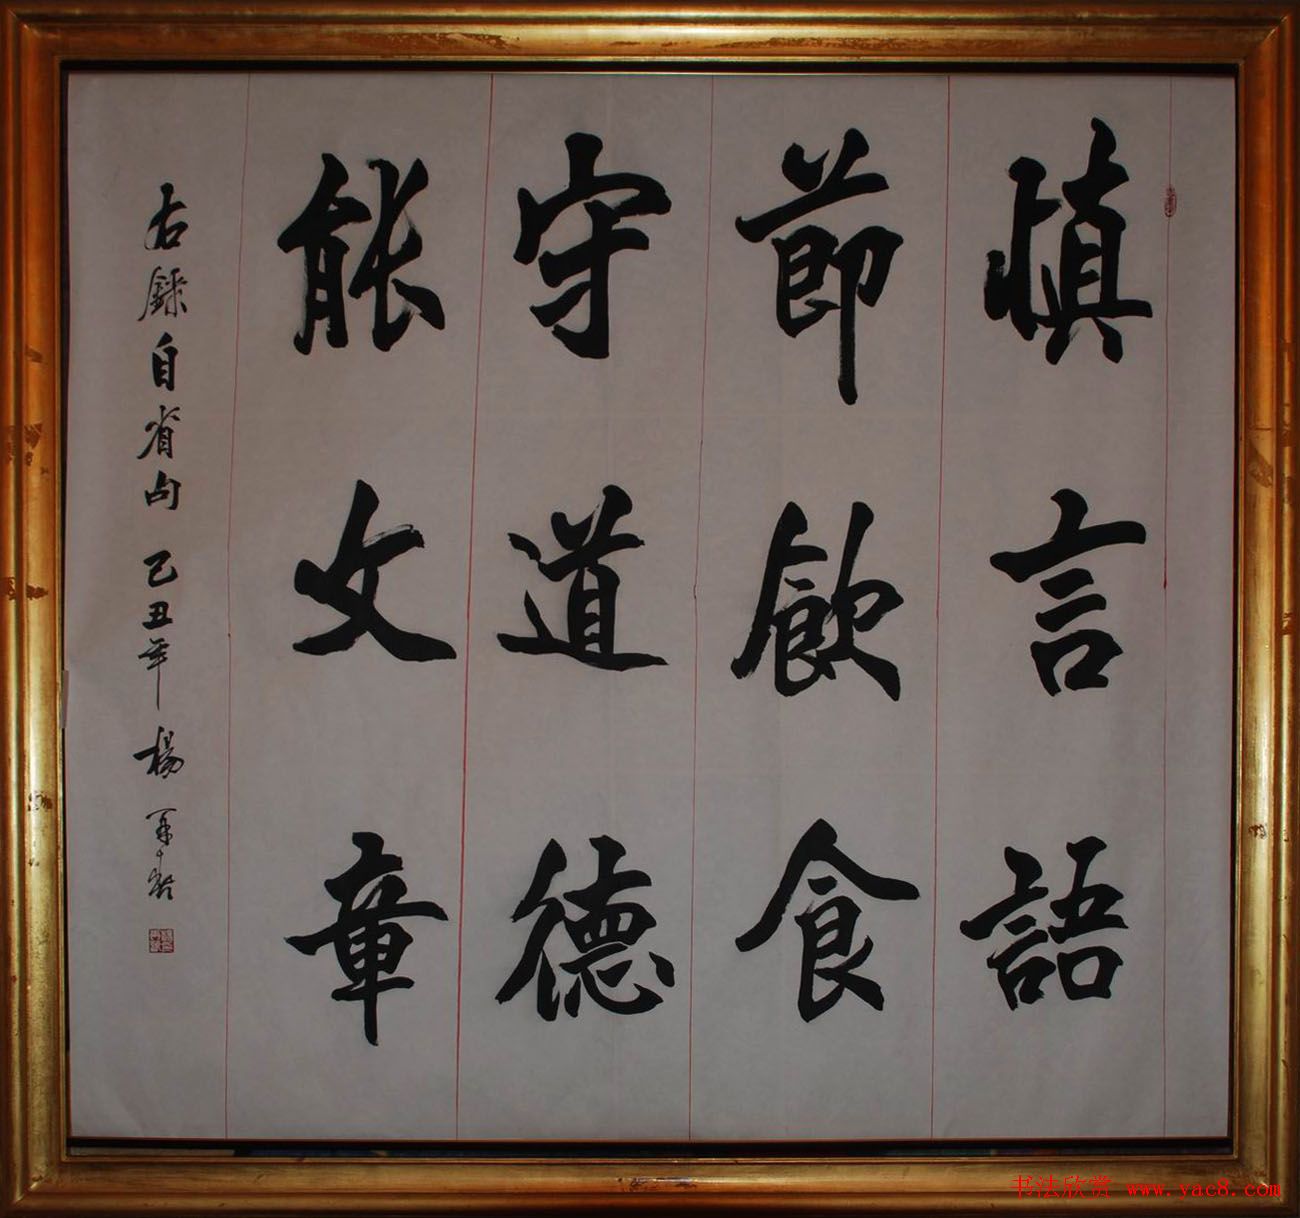 慎言語
節飲食
守道德
能文章
右錄自省句 己丑年 楊
书法欣赏 www.yac8.com